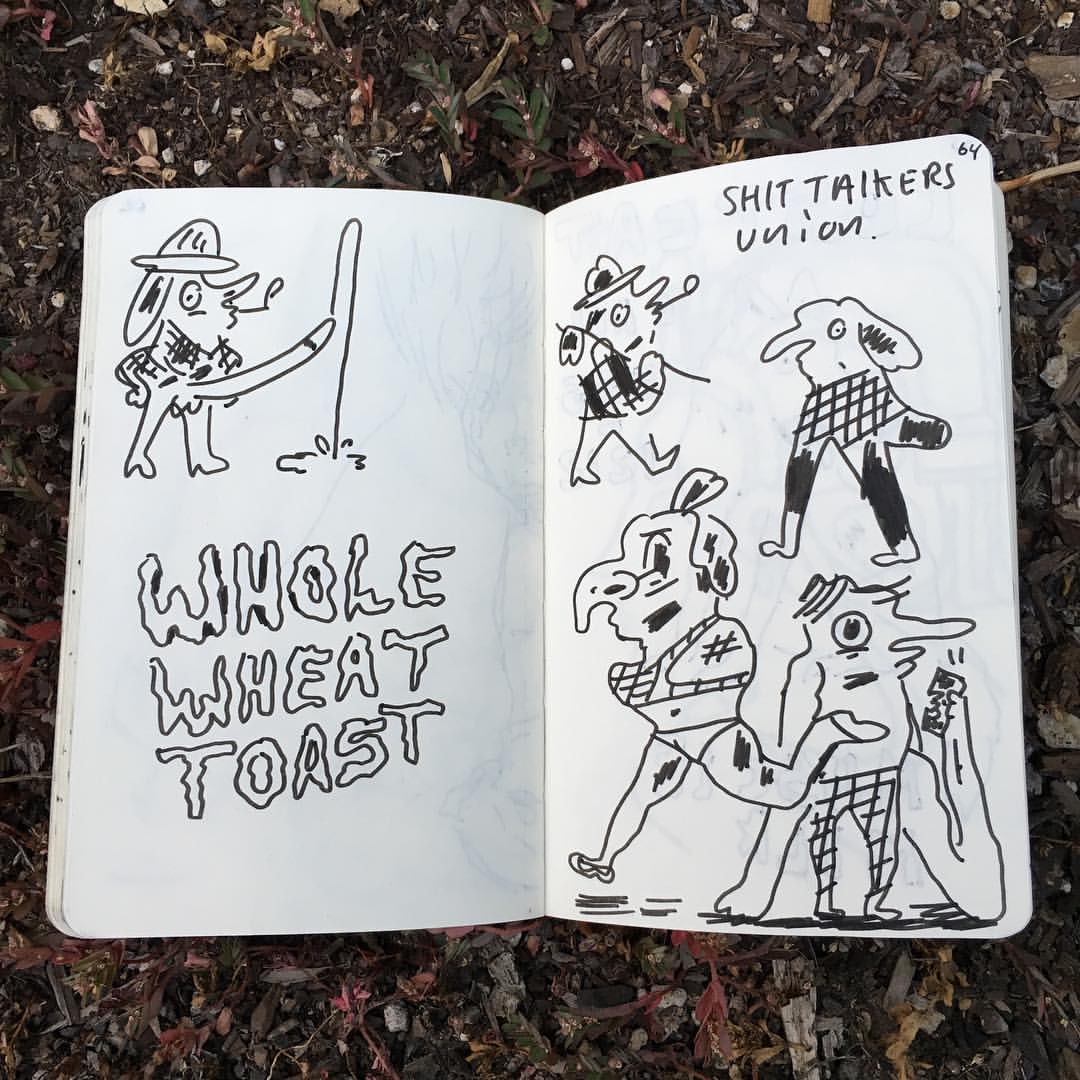 WHOLE
WHEAT
TOAST
64
SHIT TALKERS
UNION.